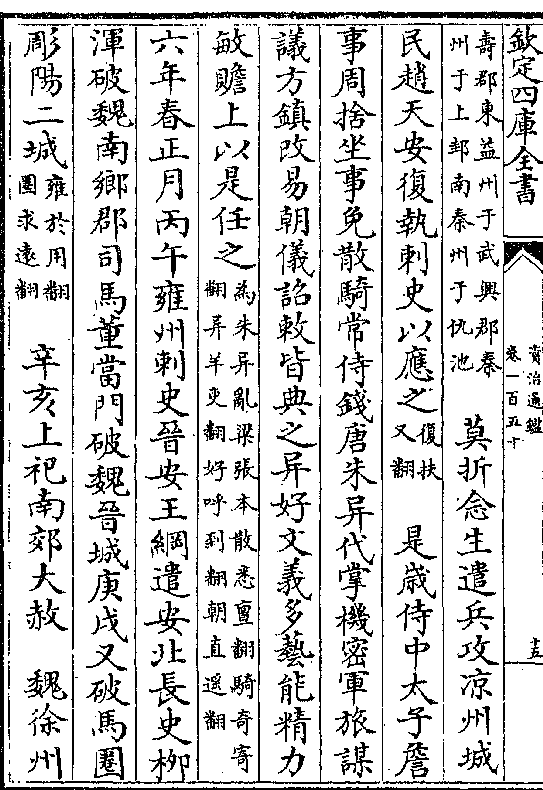 欽定四庫全書
資治通鑑
卷一百五十
十五
壽郡東益州于武興郡秦
州于上邽南秦州于仇池
莫折念生遣兵攻凉州城
民趙天安復執刺史以應之
復扶
又翻
是歲侍中太子詹
事周捨坐事免散騎常侍錢唐朱异代掌機密軍旅謀
議方鎮改易朝儀詔敕皆典之异好文義多藝能精力
敏贍上以是任之
為朱异亂梁張本散悉亶翻騎奇寄
翻异羊吏翻好呼到翻朝直遥翻
六年春正月丙午雍州刺史晉安王綱遣安北長史柳
渾破魏南鄉郡司馬董當門破魏晉城庚戌又破馬圈
彫陽二城
雍於用翻
圈求遠翻
辛亥上祀南郊大赦
魏徐州